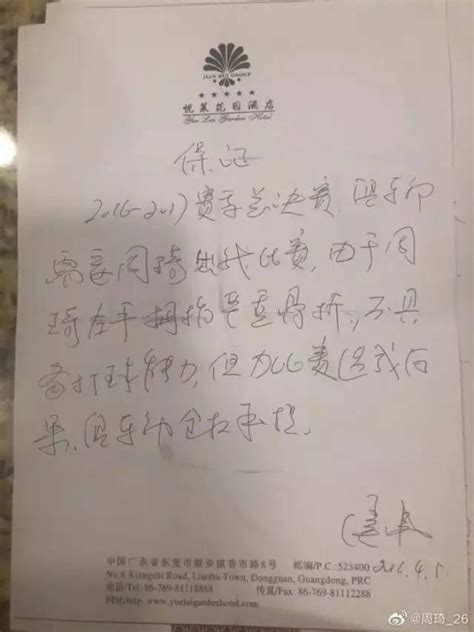 DAN BEN GROUP
★★★★★
悦莱花园酒店
Yue Lai Garden Hotel
保证
2016-2017赛季总决赛,俱乐部
需要周琦出战比赛,由于周
琦左手拇指严重骨折,不具
备打球能力,但为比赛造成后
果,俱乐部全权承担。
2016.4.5.
中国广东省东莞市寮步镇香市路8号 邮编/P.C:523400
No.8 Xiangshi Road, Liaobu Town, Dongguan, Guangdong, PRC
电话/Tel: 86-769-81118888 传真/Fax: 86-769-81112288
网址/http: www.yuelaigardenhotel.com
@周琦_26